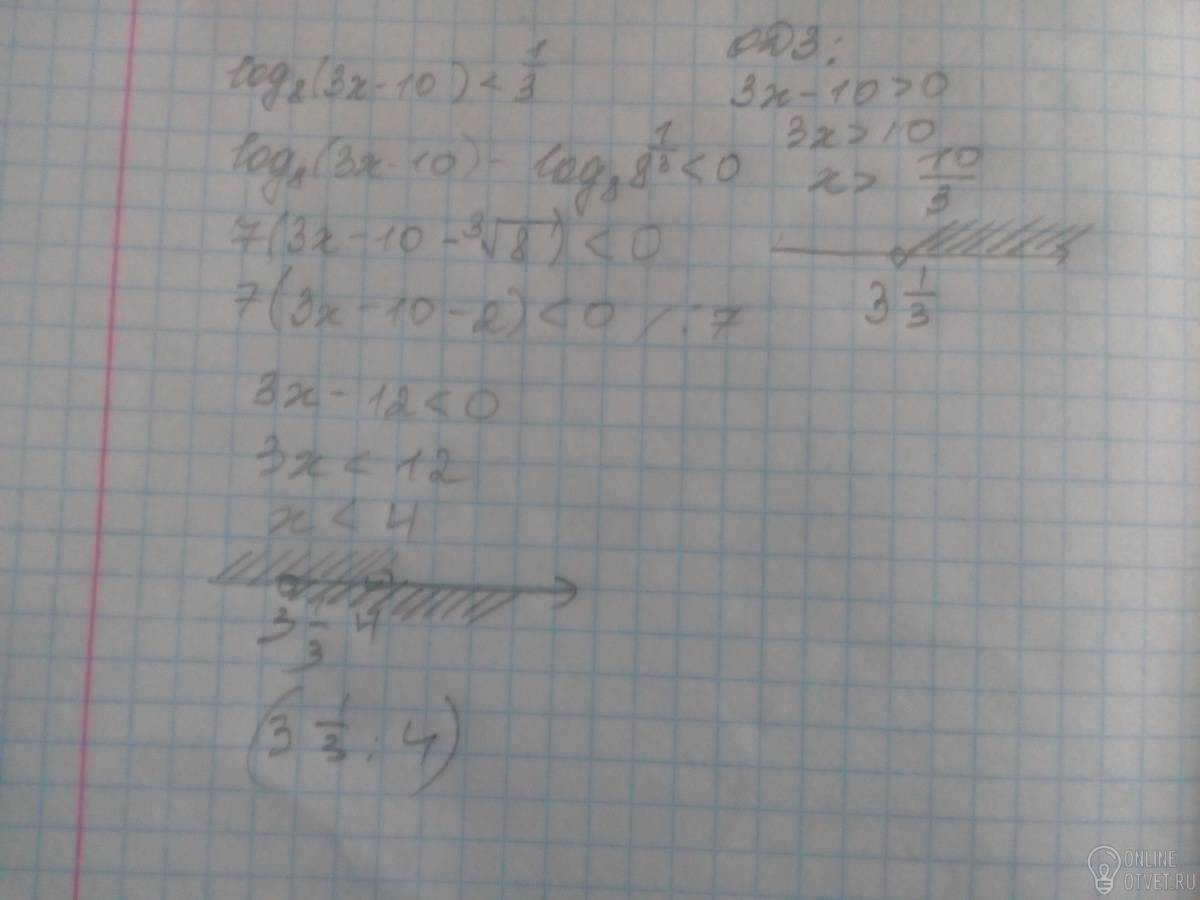 log₈(3x-10) < 1/3
log₈(3x-10) - log₈ 8^(1/3) < 0
7(3x-10-∛8) < 0
7(3x-10-2) < 0 / :7
3x-12<0
3x < 12
x < 4
3 1/3 4
(3 1/3; 4)
ОДЗ:
3x-10>0
3x>10
x> 10/3
3 1/3
ONLINE
OTVET.RU